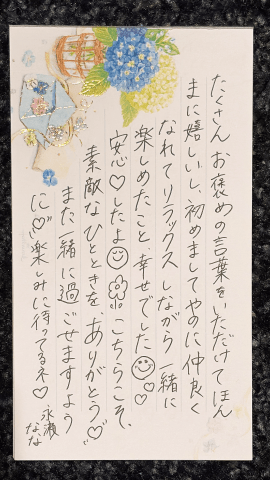 たくさんお褒めの言葉をいただけてほん
まに嬉しいし、初めましてやのに仲良く
なれてリラックスしながら一緒に
楽しめたこと、幸せでした😊♡♡
安心♡したよ☺こちらこそ、
素敵なひとときを、ありがとう♡
また一緒に過ごせますよう
に♡楽しみに待ってるネ♡
永瀬
なな